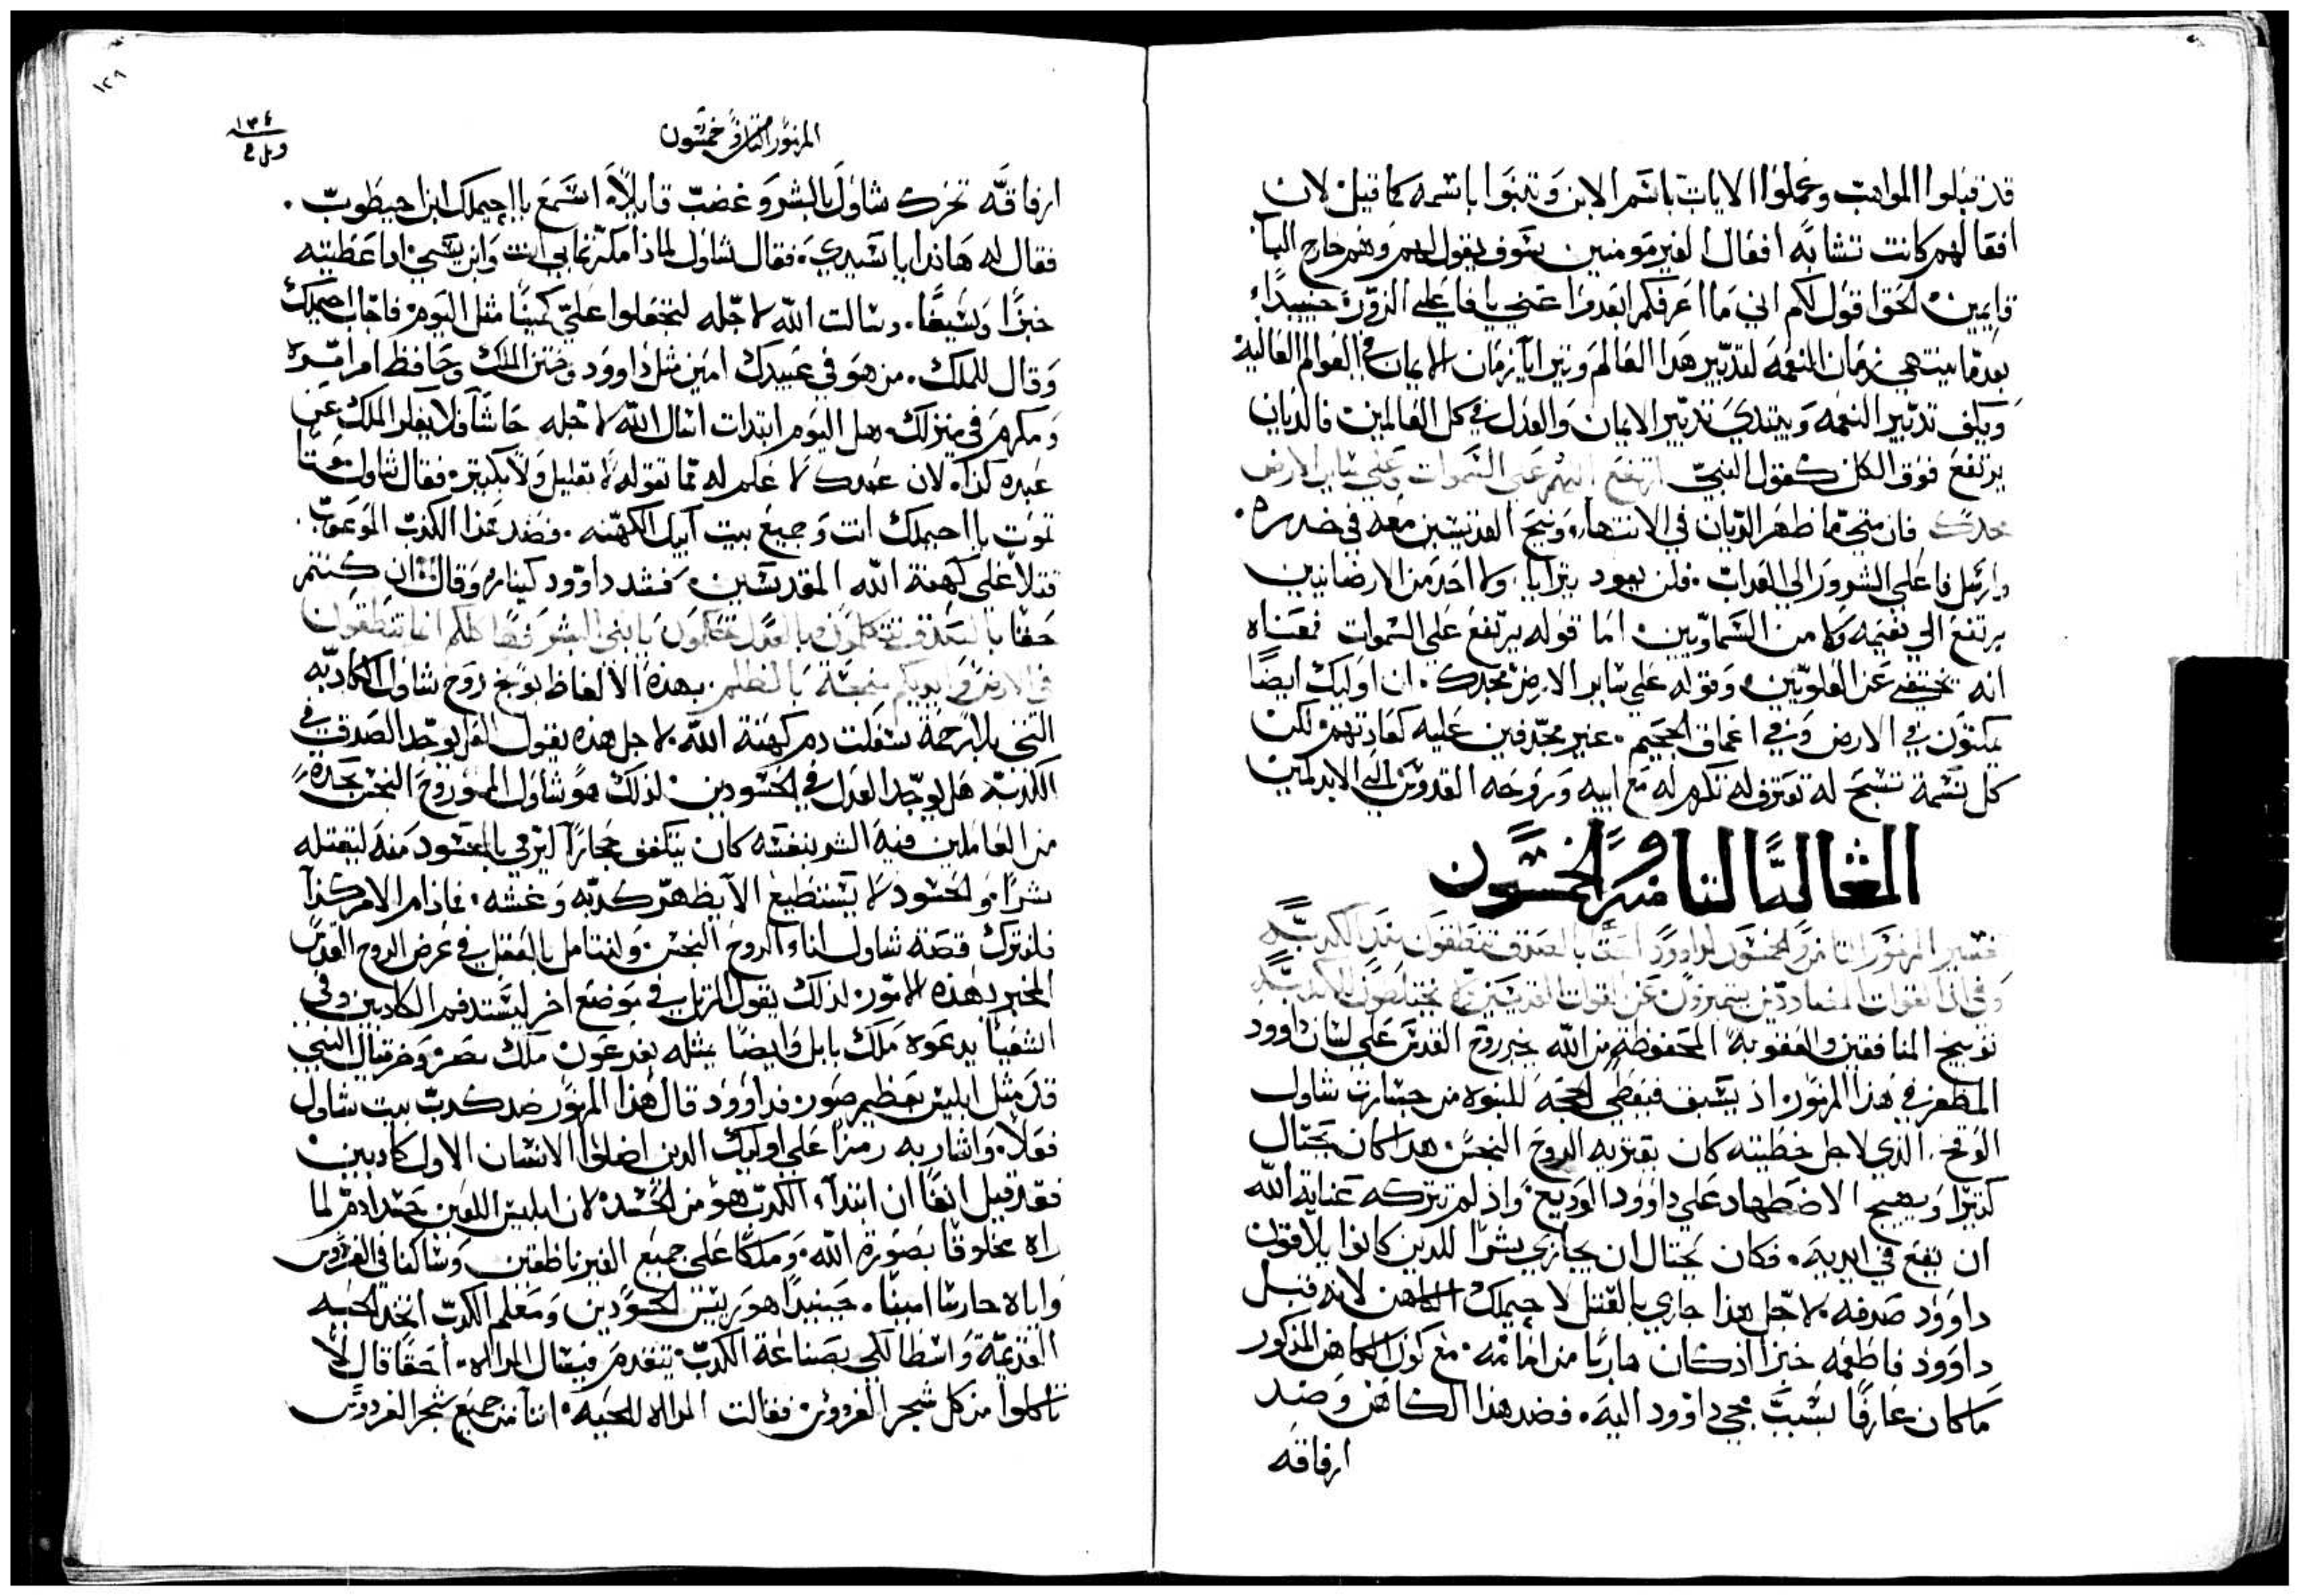 قد قبلوا المواهب وعملوا الايات باسم الابن وتنبوا باسمه كما قيل لان
افعالهم كانت تشابه افعال الغير مومنين سوف يقول لهم وهم خارج الباب
قايمين الحق اقول لكم اني ما اعرفكم ابعدوا عني يا فاعلي الزور حينيذا
بعد ما ينتهي زمان النعمه لتدبير هذا العالم ويترايا زمان الايمان في العوالم العاليه
ويكف تدبير النعمه ويبتدي تدبير الايمان والعدل في كل العالمين فالديان
يرتفع فوق الكل كقول النبي ارتفع اللهم على السموات وعلى ساير الارض
مجدك فان متي ما ظهر الديان في الانتها، ونيح القديسين معه في خدره.
وارسل فاعلي الشرور الي العذاب. فلن يعود يترايا ولا احد من الارضانيين
يرتفع الي نعيمه ولا من السماويين. اما قوله يرتفع على السموات فمعناه
انه يختفي عن العلويين وقوله علي ساير الارض مجدك. ان اوليك ايضا
يمكثون في الارض وفي اعماق الجحيم. غير مجدفين عليه كعادتهم لكن
كل نسمة تسبح له تعترف له تكرم له مع ابيه وروحه القدوس الي ابد الابدين
المقاله الثامنه والخمسون
تفسير المزمور الثامن والخمسون لداوود احقا بالصدق تنطقون بعد الكدب
توبيخ المنافقين والعقوبه المحفوظة من الله يخبر روح القدس على لسان داوود
المظفر في هذا المزمور اذ يسبق فيعطي الحجه للنبوه من جسارت شاول
الوقح. الذي لاجل خطيته كان يعتريه الروح النجس هذا كان يحتال
كتيرا ويهيج الاضطهاد علي داوود الوديع. واذ لم تتركه عناية الله
ان يقع في ايديه. فكان يحتال ان يجازي بشرا للدين كانوا يلاقون
داوود صدفه. لاجل هذا جازي بالقتل لاحيملك الكاهن لانه قبل
داوود فاطعمه خبزا اذ كان هاربا من امامه. مع كون الكاهن المذكور
ما كان عارفا بسبب مجي داوود اليه. فضد هذا الكاهن وضد
ارفاقه
١٢٩
١٣٤
المزمور الثامن والخمسون
ارفاقه تحرك شاول بالشر وغضب قايلا استمع يا احيملك ابن احيطوب.
فقال له هانذا يا سيدي. فقال شاول لماذا مكرتما بي انت وابن يسي اد اعطيته
خبزا وسيفا. وسالت الله لاجله لتجعلوا علي كمينا مثل اليوم فاجاب احيملك
وقال للملك. من هو في عبيدك امين مثل داوود وختن الملك وحافظ امرك
ومكرم في منزلك هل اليوم ابتدات اسال الله لاجله حاشا فلا يفكر الملك عن
عبده كذا. لان عبدك لا علم له مما تقوله لا بقليل ولا بكتير. فقال شاول موتا
تموت يا احيملك انت وجميع بيت ابيك الكهنه. فضد هذا الكدب
قتلا على كهنة الله المقدسين، فشد داوود كيناره وقال ان كنتم
حقا بالصدق تتكلمون وبالعدل تحكمون يا بني البشر
في الارض وايديكم بالظلم. بهذه الالفاظ يوبخ روح شاول الكادبه
التي بلا رحمة سفكت دم كهنة الله. لاجل هذه يقول هل يوجد الصدق في
الكدب. هل يوجد العدل في الحسودين. لذلك هو شاول
من العاملين فيه الشر بنفسه كان
بشرا. والحسود لا يستطيع الا يظهر كدبه وغشه. فاذا الامر كذا
فلنترك قصة شاول اناء الروح النجس ولنتامل بالعقل في غرض الروح القدس
المخبر بهذه الامور. لذلك يقول المرتل في موضع اخر ليستد فم الكادبين وفي
اشعيا يدعوه ملك بابل وايضا يمثله بفرعون ملك مصر وحزقيال النبي
قد مثل ابليس بعظيم صور. فداوود قال هذا المزمور ضد كدب بيت شاول
فعلا. واشار به رمزا على اوليك الدين اضلوا الانسان الاول كادبين
فقد قيل انفا ان ابتداء الكدب هو من الحسد. لان ابليس اللعين حسد ادم لما
راه مخلوقا بصورة الله. وملكا على جميع الغير ناطقين وساكنا في الفردوس
واياه حارسا امينا. حينيدا هو رييس الحسودين ومعلم الكدب اتخد الحيه
القديمة واسطا لكي بصناعة الكدب يتقدم فيسال المراه. احقا قال لا
تاكلوا من كل شجر الفردوس. فقالت المراه للحيه. اننا من جميع شجر الفردوس